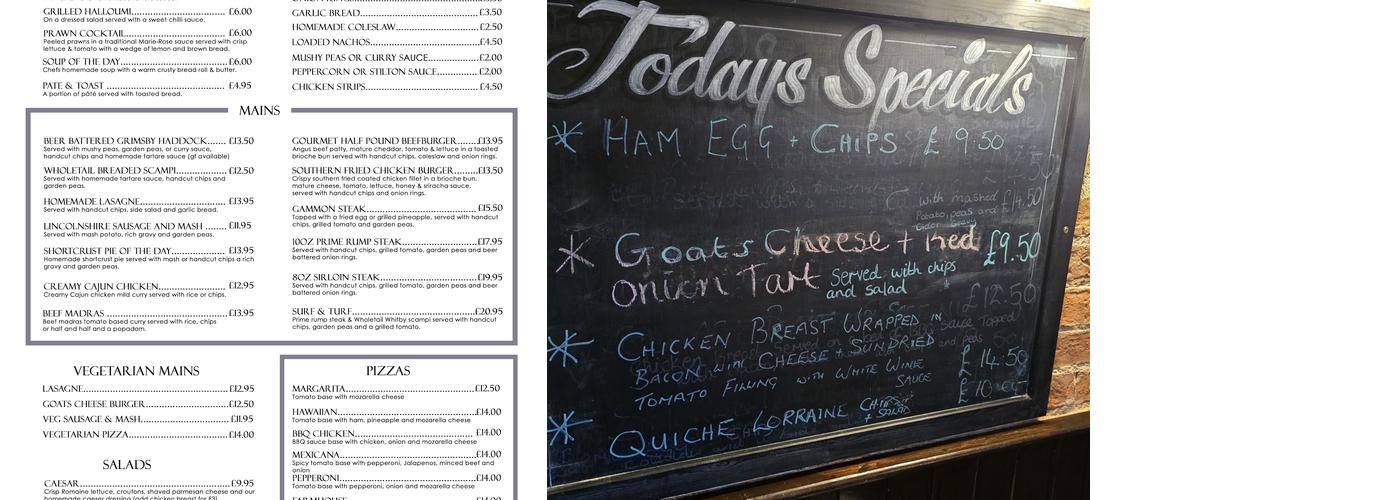 GRILLED HALLOUMI.......................... £6.00
On a dressed salad served with a sweet chilli sauce.
PRAWN COCKTAIL........................... £6.00
Peeled prawns in a traditional Marie-Rose sauce served with crisp
lettuce & tomato with a wedge of lemon and brown bread.
SOUP OF THE DAY........................... £6.00
Chefs homemade soup with a warm crusty bread roll & butter.
PATE & TOAST ................................ £4.95
A portion of pâté served with toasted bread.
GARLIC BREAD........................................ £3.50
HOMEMADE COLESLAW........................... £2.50
LOADED NACHOS................................... £4.50
MUSHY PEAS OR CURRY SAUCE................£2.00
PEPPERCORN OR STILTON SAUCE.............£2.00
CHICKEN STRIPS.....................................£4.50
MAINS
BEER BATTERED GRIMSBY HADDOCK...... £13.50
Served with mushy peas, garden peas, or curry sauce,
handcut chips and homemade tartare sauce (gf available)
WHOLETAIL BREADED SCAMPI.................£12.50
Served with homemade tartare sauce, handcut chips and
garden peas.
HOMEMADE LASAGNE..............................£13.95
Served with handcut chips, side salad and garlic bread.
LINCOLNSHIRE SAUSAGE AND MASH ....... £11.95
Served with mash potato, rich gravy and garden peas.
SHORTCRUST PIE OF THE DAY..................£13.95
Homemade shortcrust pie served with mash or handcut chips a rich
gravy and garden peas.
CREAMY CAJUN CHICKEN........................£12.95
Creamy Cajun chicken mild curry served with rice or chips.
BEEF MADRAS .......................................£13.95
Beef madras tomato based curry served with rice, chips
or half and half and a popadom.
GOURMET HALF POUND BEEFBURGER.......£13.95
Angus beef patty, mature cheddar, tomato & lettuce in a toasted
brioche bun served with handcut chips, coleslaw and onion rings.
SOUTHERN FRIED CHICKEN BURGER........£13.50
Crispy southern fried coated chicken fillet in a brioche bun,
mature cheese, tomato, lettuce, honey & sriracha sauce,
served with handcut chips and onion rings.
GAMMON STEAK.....................................£15.50
Topped with a fried egg or grilled pineapple, served with handcut
chips, grilled tomato and garden peas.
10OZ PRIME RUMP STEAK........................£17.95
Served with handcut chips, grilled tomato, garden peas and beer
battered onion rings.
8OZ SIRLOIN STEAK................................£19.95
Served with handcut chips, grilled tomato, garden peas and beer
battered onion rings.
SURF & TURF..........................................£20.95
Prime rump steak & Wholetail Whitby scampi served with handcut
chips, garden peas and a grilled tomato.
VEGETARIAN MAINS
LASAGNE...............................................£12.95
GOATS CHEESE BURGER...........................£12.50
VEG SAUSAGE & MASH............................£11.95
VEGETARIAN PIZZA.................................£14.00
SALADS
CAESAR.................................................£9.95
Crisp Romaine lettuce, croutons, shaved parmesan cheese and our
homemade caeser dressing (add chicken breast for £3)
PIZZAS
MARGARITA...........................................£12.50
Tomato base with mozarella cheese
HAWAIIAN..............................................£14.00
Tomato base with ham, pineapple and mozarella cheese
BBQ CHICKEN........................................ £14.00
BBQ sauce base with chicken, onion and mozarella cheese
MEXICANA.............................................£14.00
Spicy tomato base with pepperoni, Jalapenos, minced beef and
onion
PEPPERONI.............................................£14.00
Tomato base with pepperoni, onion and mozarella cheese
FARMHOUSE..........................................£14.00
Todays Specials
* HAM EGG + CHIPS £9.50
with mashed
Potato, peas and
£14.50
* Goats Cheese + Red £9.50
onion Tart Served with chips
and salad
£12.50
* CHICKEN BREAST WRAPPED IN
BACON WITH CHEESE + SUNDRIED £14.50
TOMATO FILLING WITH WHITE WINE
SAUCE £10
* QUICHE LORRAINE CHIPS
+ SALAD